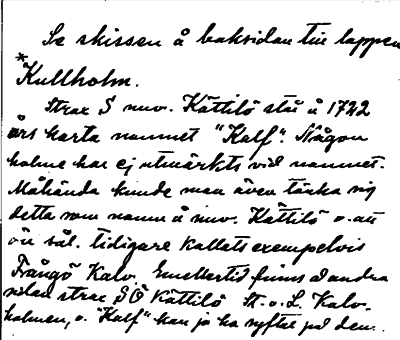 Se skissen å baksidan till lappen
*Kullholm.
Strax S nuv. Kättilö står å 1742
års karta namnet "Kalf". Någon
holme har ej utmärkts vid namnet.
Måhända kunde man även tänka sig
detta som namn å nuv. Kättilö o. att
ön sål. tidigare kallats exempelvis
Frångö Kalv. Emellertid finns å andra
sidan strax SÖ Kättilö St. o. L. Kalv-
holmen, o. "Kalf" kan ju ha syftat på dem.